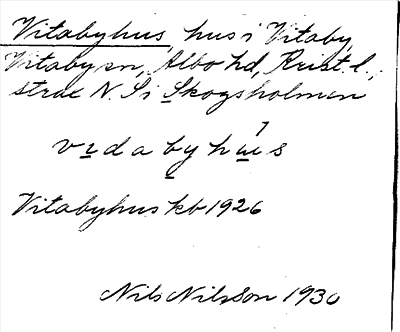 Vitabyhus, hus i Vitaby,
Vitaby sn, Albo hd, Krist. l.,
strax N. S i Skogsholmen
vidabyhus
Vitabyhus kb 1926
Nils Nilsson 1930